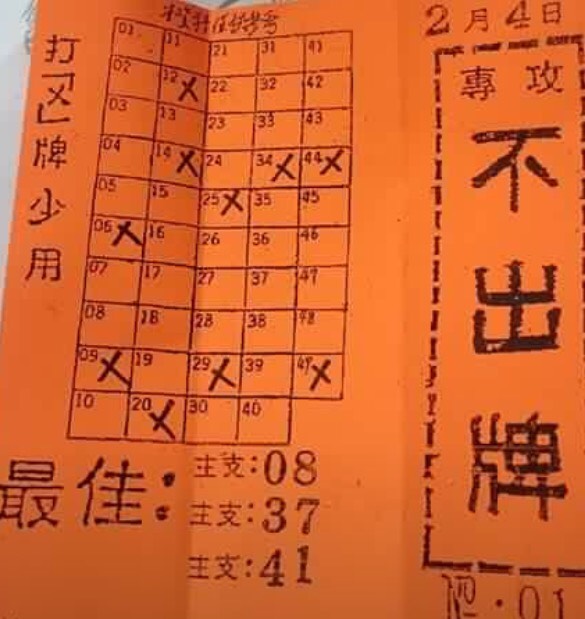 2月4日
專攻
不出牌
打「X」牌少用
01 11 21 31 41
02 12X 22 32 42
03 13 23 33 43
04 14X 24 34X 44X
05 15 25X 35 45
06X 16 26 36 46
07 17 27 37 47
08 18 28 38 48
09X 19 29X 39 49X
10 20X 30 40
最佳:
主支:08
主支:37
主支:41